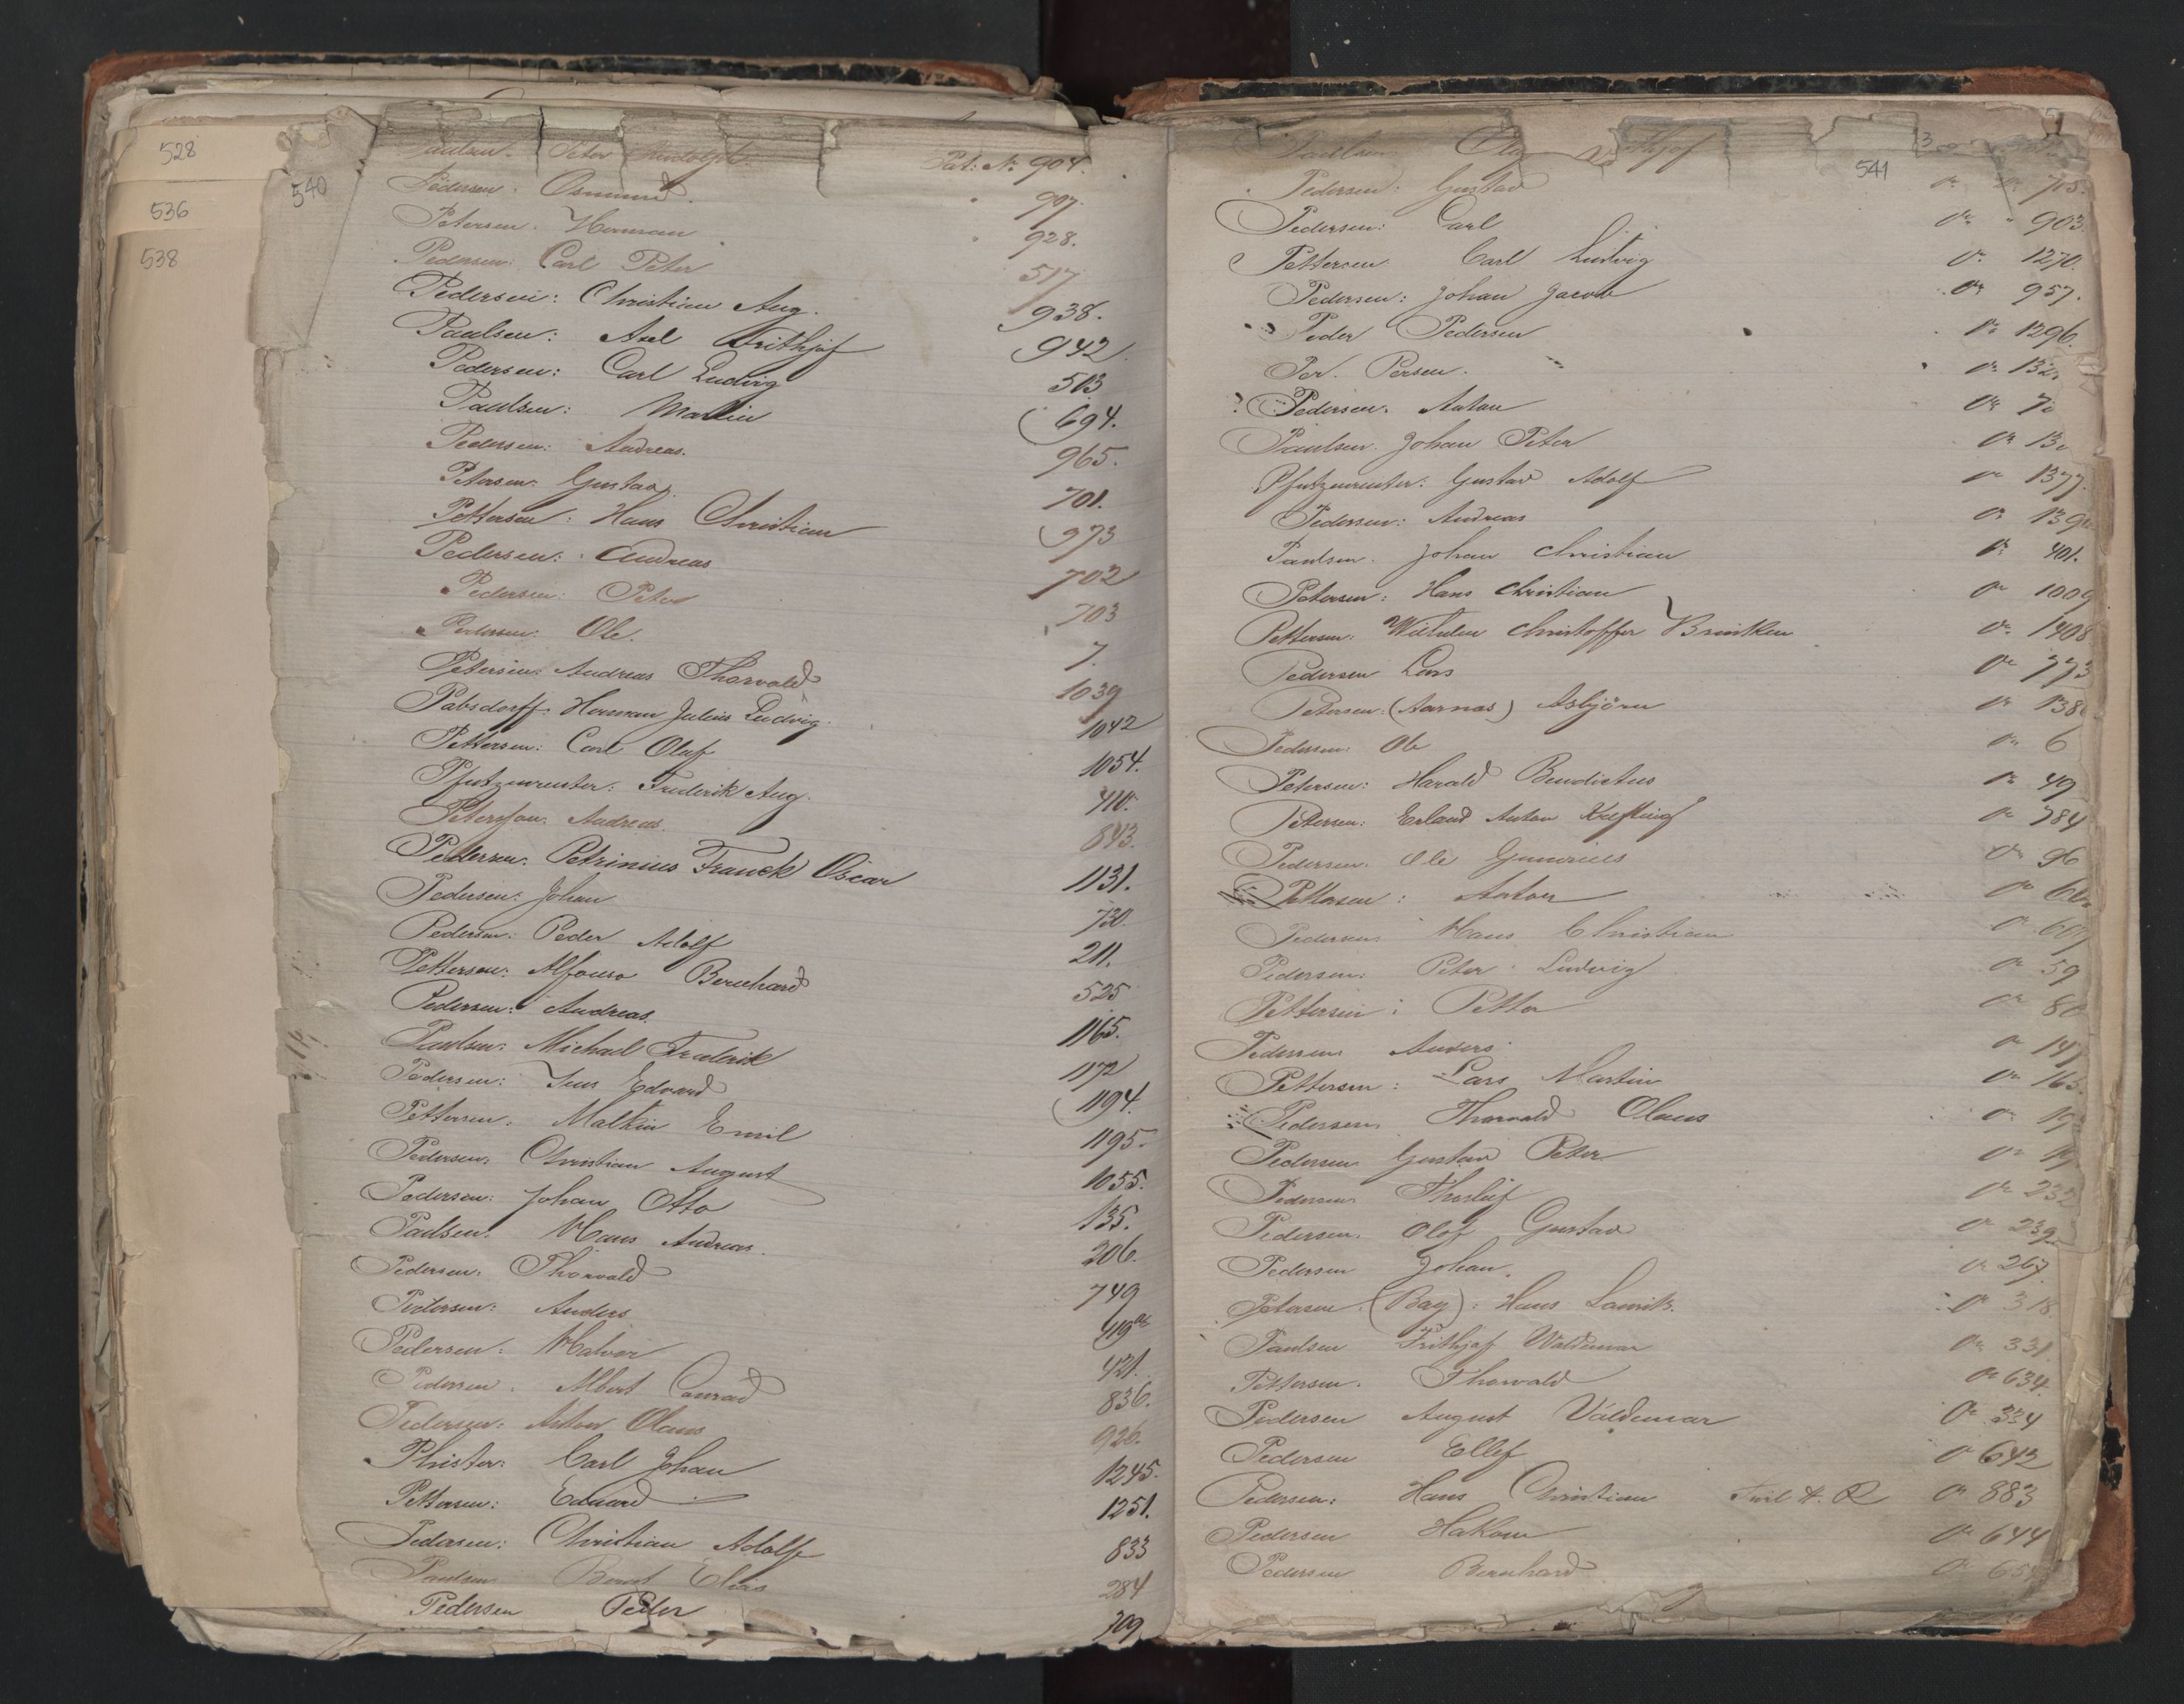 528
536
538
540
Paulsen. Peter Rudolph Pat: No 904.
Pedersen: Osmund. 907.
Petersen. Herman 928.
Pedersen: Carl Peter 517
Pedersen: Christian Aug. 938.
Paulsen: Axel Frithjof 942
Pedersen: Carl Ludvig 503
Paulsen: Martin 694.
Pedersen: Andreas. 965.
Petersen: Gustav. 701.
Pettersen: Hans Christian 973
Pedersen: Andreas 702
Pedersen: Peter 703
Pedersen: Ole. 7.
Petersen: Andreas Thorvald 1039
Pabsdorff: Herman Julius Ludvig. 1042
Pettersen: Carl Olaf 1054.
Pfutzenreuter: Frederik Aug. 410.
Petersson: Andreas. 843.
Pedersen: Petrinius Franck Oscar 1131.
Pedersen: Johan 730.
Pedersen: Peder Adolf 211.
Pettersen: Alfonso Bernhard 525
Pedersen: Andreas. 1165.
Paulsen: Michael Frederik 1172
Pedersen: Jens Edvard 1194.
Pettersen: Malkin Emil 1195.
Pedersen: Christian August 1055.
Pedersen: Johan Otto 135.
Paulsen: Hans Andreas. 206.
Pedersen: Thorvald 749
Pedersen: Anders 419
Pedersen: Halvor 421.
Pedersen. Albert Conrad 836.
Pedersen: Anton Olaus 926.
Phister: Carl Johan 1245.
Pettersen: Edvard 1251.
Pedersen: Christian Adolf 833
Paulsen Bernt Elias 284
Pedersen Peder 309
541
Pedersen: Gustav 715.
Pedersen: Carl 903
Pettersen Carl Ludvig 1270.
Pedersen: Johan Jacob 957.
Peder Pedersen 1296.
Per. Persen.
Pedersen. Anton
Paulsen. Johan Peter
Pfutzenreuter: Gustav Adolf 1377
Pedersen: Andreas
Paulsen. Johan Christian 401.
Petersen: Hans Christian 1009
Pettersen: Wilhelm Christoffer Brintken 1408
Pedersen Lars 773
Petersen: (Aarnas) Asbjörn
Pedersen: Ole 6
Petersen: Harald Benedictus 49
Petersen: Erland Anton Krefting 784
Pedersen. Ole Gunerius 96
Pettersen: Anton
Pedersen. Hans Christian
Pedersen: Peter Ludvig 59
Pettersen: Petter
Pedersen: Anders
Pettersen: Lars Martin
Pedersen. Thorvald Olaus
Pedersen Gustav Peter
Pedersen Thorleif 232
Pedersen. Olof Gustav 239
Pedersen Johan. 267
Petersen. (Bay): Hans Lauritz. 318.
Paulsen Frithjof Waldemar 331
Pettersen. Thorvald 634
Pedersen August Valdemar 334
Pedersen Ellef 642
Pedersen: Hans Christian 883
Pedersen Hakon 644
Pedersen Bernhard